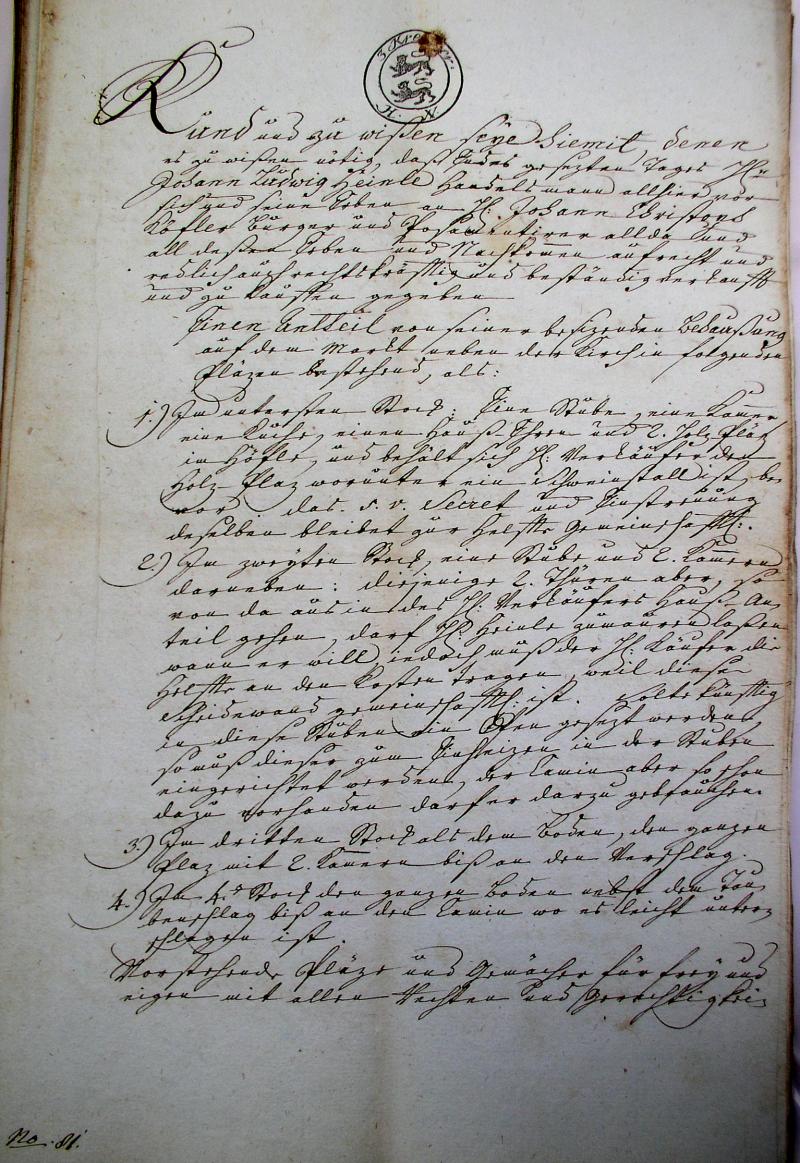 3 Kreuzer.
H. N.
Kund und zu wißen seye hiemit denen
es zu wißen nötig, daß Endes gesezten Tages H:
Johann Ludwig Heinle Handelsmann allhier, vor
sich und seine Erben an H: Johann Christoph
Köfler Burger und Posamentirer allda und
all deßen Erben und Nachkomen aufrecht und
redlich auch rechtskräfftig und beständig verkaufft
und zu Kauffen gegeben
Einen Antheil von seiner besizenden Behaußung
auf dem Markt neben der Kirch in folgenden
Pläzen bestehend, als:
1.) Im untersten Stock: Eine Stube, eine Kamer
eine Küche, einen Hauß-Ehren und 2. Holz Pläz
im Höfle, und behält sich H: Verkäufer den
Holz-Plaz worunter ein Schweinstall ist, be
vor das s. v. Secret und Einstreuung
deselben bleibet zur Helffte gemeinschafftl:.
2.) Im zweyten Stock, eine Stube und 2. Kamern
darneben: diejenige 2. Thüren aber, so
von da aus in des H: Verkäufers Hauß-An
teil gehen, darf H: Heinle zumauren laßen
wann er will, iedoch muß der H: Käufer die
Helffte an den Kosten tragen, weil diese
Scheidewand gemeinschafftl: ist. Solte künfftig
in diese Stuben ein Ofen gesezt werden,
so muß dieser zum Einheizen in der Stuben
eingerichtet werden, der Camin aber so schon
dazu vorhanden darf er darzu gebrauchen.
3.) Im dritten Stock als dem Boden, den ganzen
Plaz mit 2. Kamern biß an den Verschlag.
4.) Im 4. Stock den ganzen Boden nebst dem Tau
benschlag biß an den Camin wo es leicht unter-
schlagen ist.
Vorstehende Pläze und Gemächer für frey und
eigen mit allen Rechten und Gerechtigkei-
No. 81.